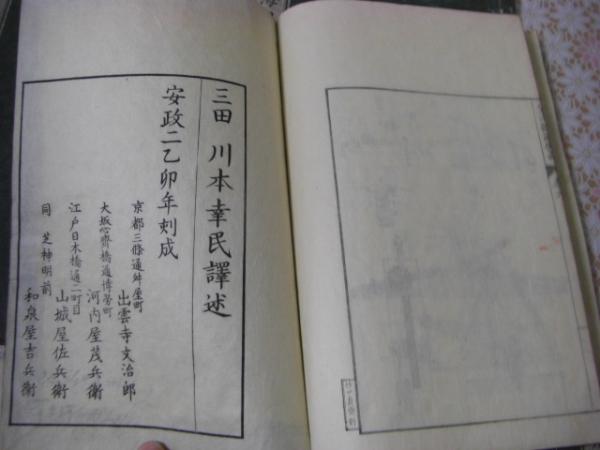 三田 川本幸民譯述
安政二乙卯年刻成
京都三條通舛屋町 出雲寺文治郎
大坂心齋橋通博勞町 河内屋茂兵衛
江戸日本橋通二町目 山城屋佐兵衛
同 芝神明前 和泉屋吉兵衛